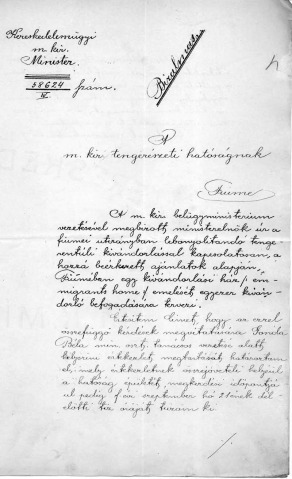 Kereskedelemügyi
m. kir.
Minister.
58624 szám.
V.
Bizalmas
A
m. kir. tengerészeti hatóságnak
Fiume
A m. kir. belügyministerium
vezetésével megbizott ministerelnök úr a
fiumei útirányban lebonyolítandó tenge-
rentúli kivándorlással kapcsolatosan, a
hozzá beérkezett ajánlatok alapján
Fiuméban egy kivándorlási ház / em-
migrants home / emelését egyezer kiván-
dorló befogadására tervezi.
Értesitem Címet, hogy az ezzel
összefüggő kérdések megvitatására Gonda
Béla min. oszt. tanácsos vezetése alatt
helyszini értekezlet megtartását határoztam
el, mely értekezletnek összejöveteli helyéül
a hatóság épületét, megkezdési időpontjá-
ul pedig f. évi szeptember hó 21-ének dél-
előtti tiz óráját tüzöm ki